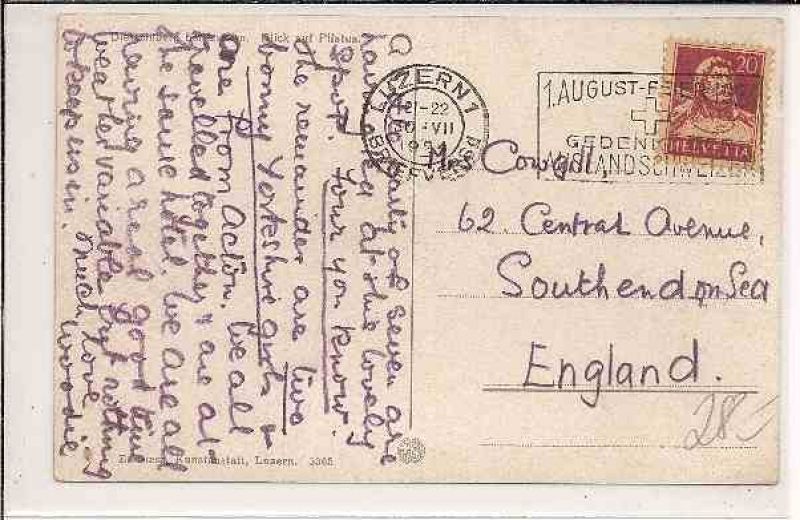 Dietschiberg bei Luzern. Blick auf Pilatus.
A party of seven are
have arrived at this lovely
spot. Four you know.
the remainder are two
bonny Yorkshire girls &
one from Acton. We all
travelled together & are at
the same hotel. We are all
having a real good time
weather variable but nothing
to keep us in. Much love
Woodie
LUZERN 1
21-22
VII
BRIEFVERSAND
1.AUGUST-FEIER
GEDENKT
AUSLANDSCHWEIZER
20
HELVETIA
Cowgill,
62. Central Avenue,
Southend on Sea
England.
28-
Kunstanstalt, Luzern. 3365